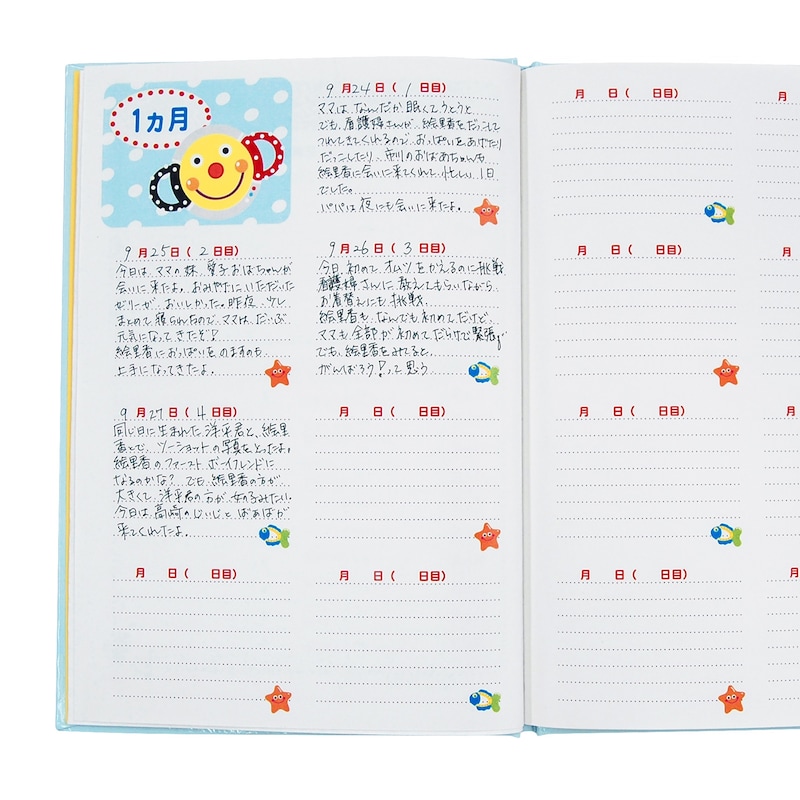 1ヵ月
9月24日(1日目)
ママは、なんだか眠くてうとうと
でも、看護婦さんが、絵里香をだっこして
つれてきてくれるので、おっぱいをあげたり
だっこしたり、市川のおばあちゃんも
絵里香に会いに来てくれて、忙しい1日
でした。
パパは夜にも会いに来たよ。
9月25日(2日目)
今日は、ママの妹、愛子おばちゃんが
会いに来たよ。おみやたにいただいた
ゼリーが、おいしかった。昨夜、少し
まとめて寝られたので、ママは、だいぶ
元気になってきたぞ!
絵里香におっぱいをのますのも、
上手になってきたよ。
9月26日(3日目)
今日、初めて、オムツをかえるのに挑戦
看護婦さんに教えてもらいながら、
お着替えにも挑戦
絵里香も、なんでも初めてだけど、
ママも全部が初めてだらけで緊張
でも、絵里香をみてると、
がんばろう!って思う
9月27日(4日目)
同じ日に生まれた洋平君と、絵里
香とで、ツーショットの写真をとったよ。
絵里香のファーストボーイフレンドに
なるのかな? でも、絵里香の方が
大きくて、洋平君の方が女の子みたい。
今日は、高崎のじいじとばあばが
来てくれたよ。
月 日( 日目)
月 日( 日目)
月 日( 日目)
月 日( 日目)
月
月 日( 日目)
月
月 日( 日目)
月
月 日( 日目)
月